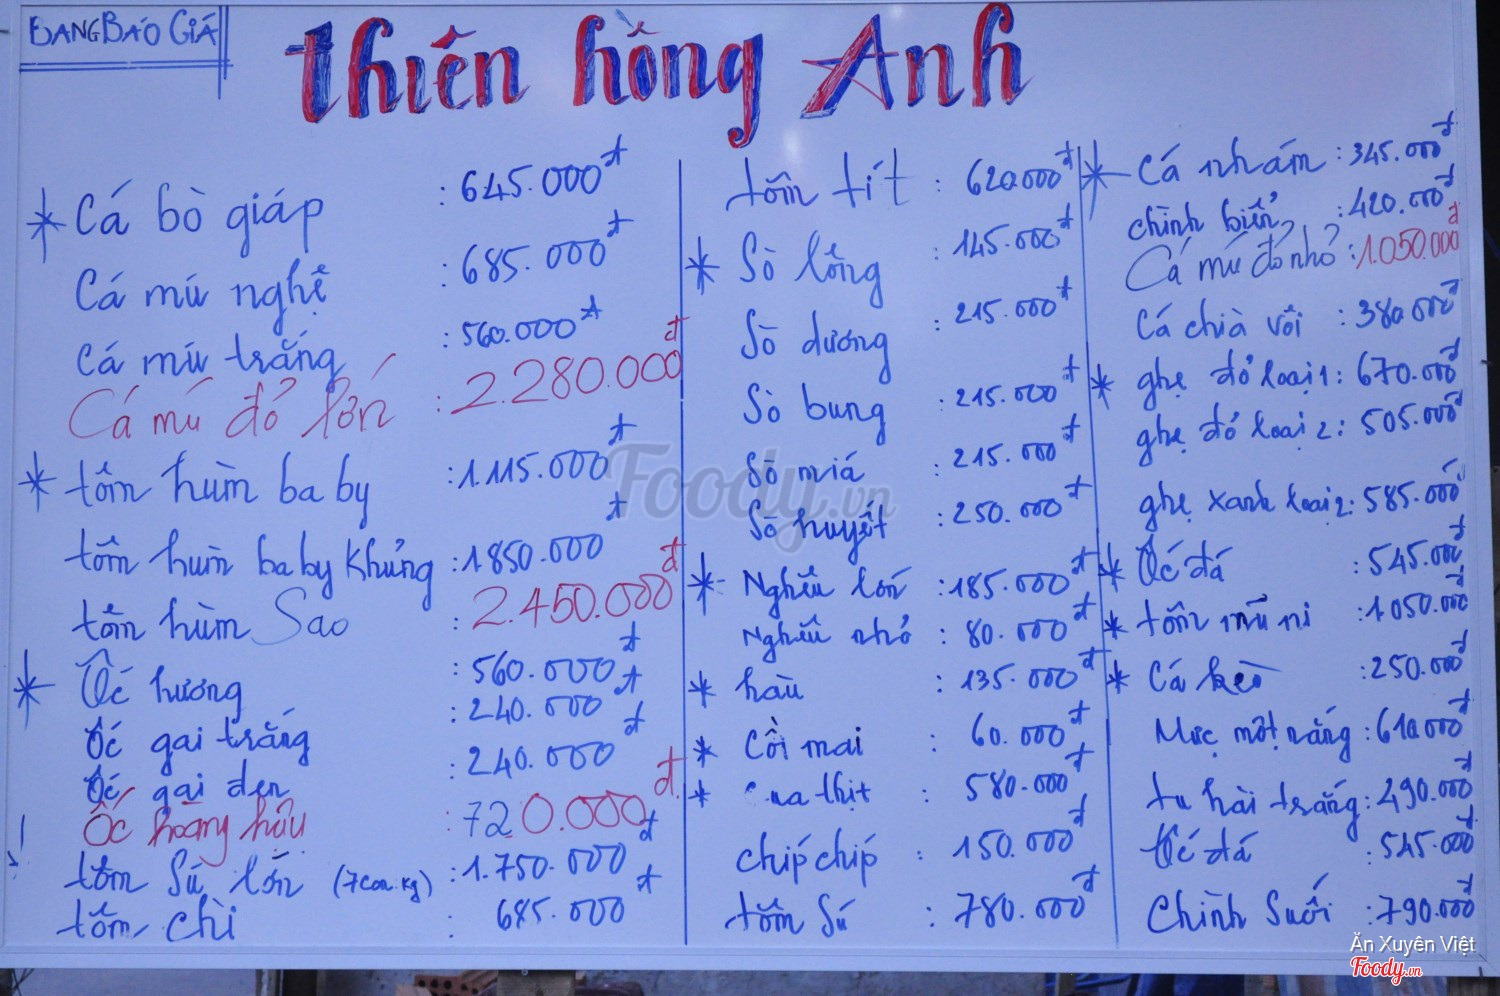 BẢNG BÁO GIÁ
Thiên Hồng Anh
* Cá bò giáp : 645.000đ
Cá mú nghệ : 685.000đ
Cá mú trắng : 560.000đ
Cá mú đỏ lớn : 2.280.000đ
* tôm hùm baby : 1.115.000đ
tôm hùm baby khủng : 1850.000đ
tôm hùm Sao : 2.450.000đ
* Ốc hương : 560.000đ
Ốc gai trắng : 240.000đ
Ốc gai đen : 240.000đ
Ốc hoàng hậu : 720.000đ
tôm Sú lớn (7con.kg) : 1.750.000đ
tôm chì : 685.000đ
tôm tít : 620.000đ
* Sò lông : 145.000đ
Sò dương : 215.000đ
Sò bung : 215.000đ
Sò miá : 215.000đ
Sò huyết : 250.000đ
* Nghêu lớn : 185.000đ
Nghêu nhỏ : 80.000đ
* hàu : 135.000đ
* Cồi mai : 60.000đ
* thịt : 580.000đ
chíp chíp : 150.000đ
tôm Sú : 780.000đ
* Cá nhám : 345.000đ
chình biển : 420.000đ
Cá mú đỏ nhỏ : 1.050.000đ
Cá chià vôi : 380.000đ
* ghẹ đỏ loại 1 : 670.000đ
ghẹ đỏ loại 2 : 505.000đ
ghẹ xanh loại 2 : 585.000đ
* Ốc đá : 545.000đ
* tôm mũ ni : 1050.000đ
* Cá kèo : 250.000đ
Mực một nắng : 610.000đ
tu hài trắng : 490.000đ
Ốc đá : 545.000đ
Chình Suối : 790.000đ
Foody.vn
Ăn Xuyên Việt
Foody.vn